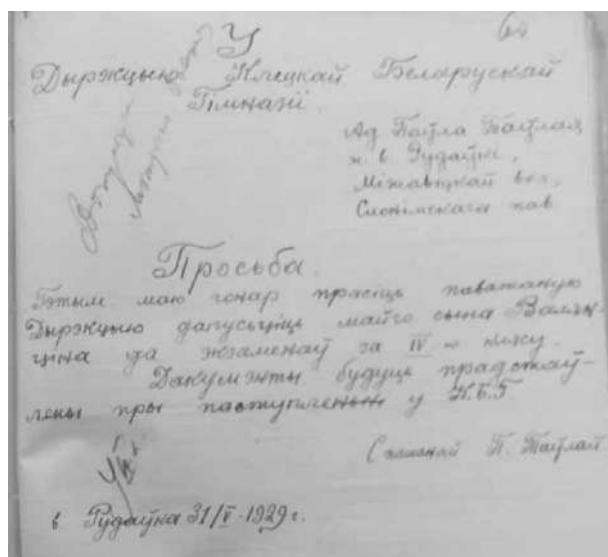 У
60
Дырэкцыю Клецкай Беларускай
Гімназіі.
Ад Паўла Таўлая
ж. в. Рудаўкі,
Міжэвіцкай вол.,
Слонімскага пав.
Просьба.
Гэтым маю гонар прасіць паважаную
Дырэкцыю дапусьціць майго сына Валян-
ціна да экзаменаў за IV ю клясу.
Дакумэнты будуць прадстаў-
лены пры паступленьні у К.Б.Г
С пашанай П. Таўлай
в Рудаўка 31/V - 1929 г.